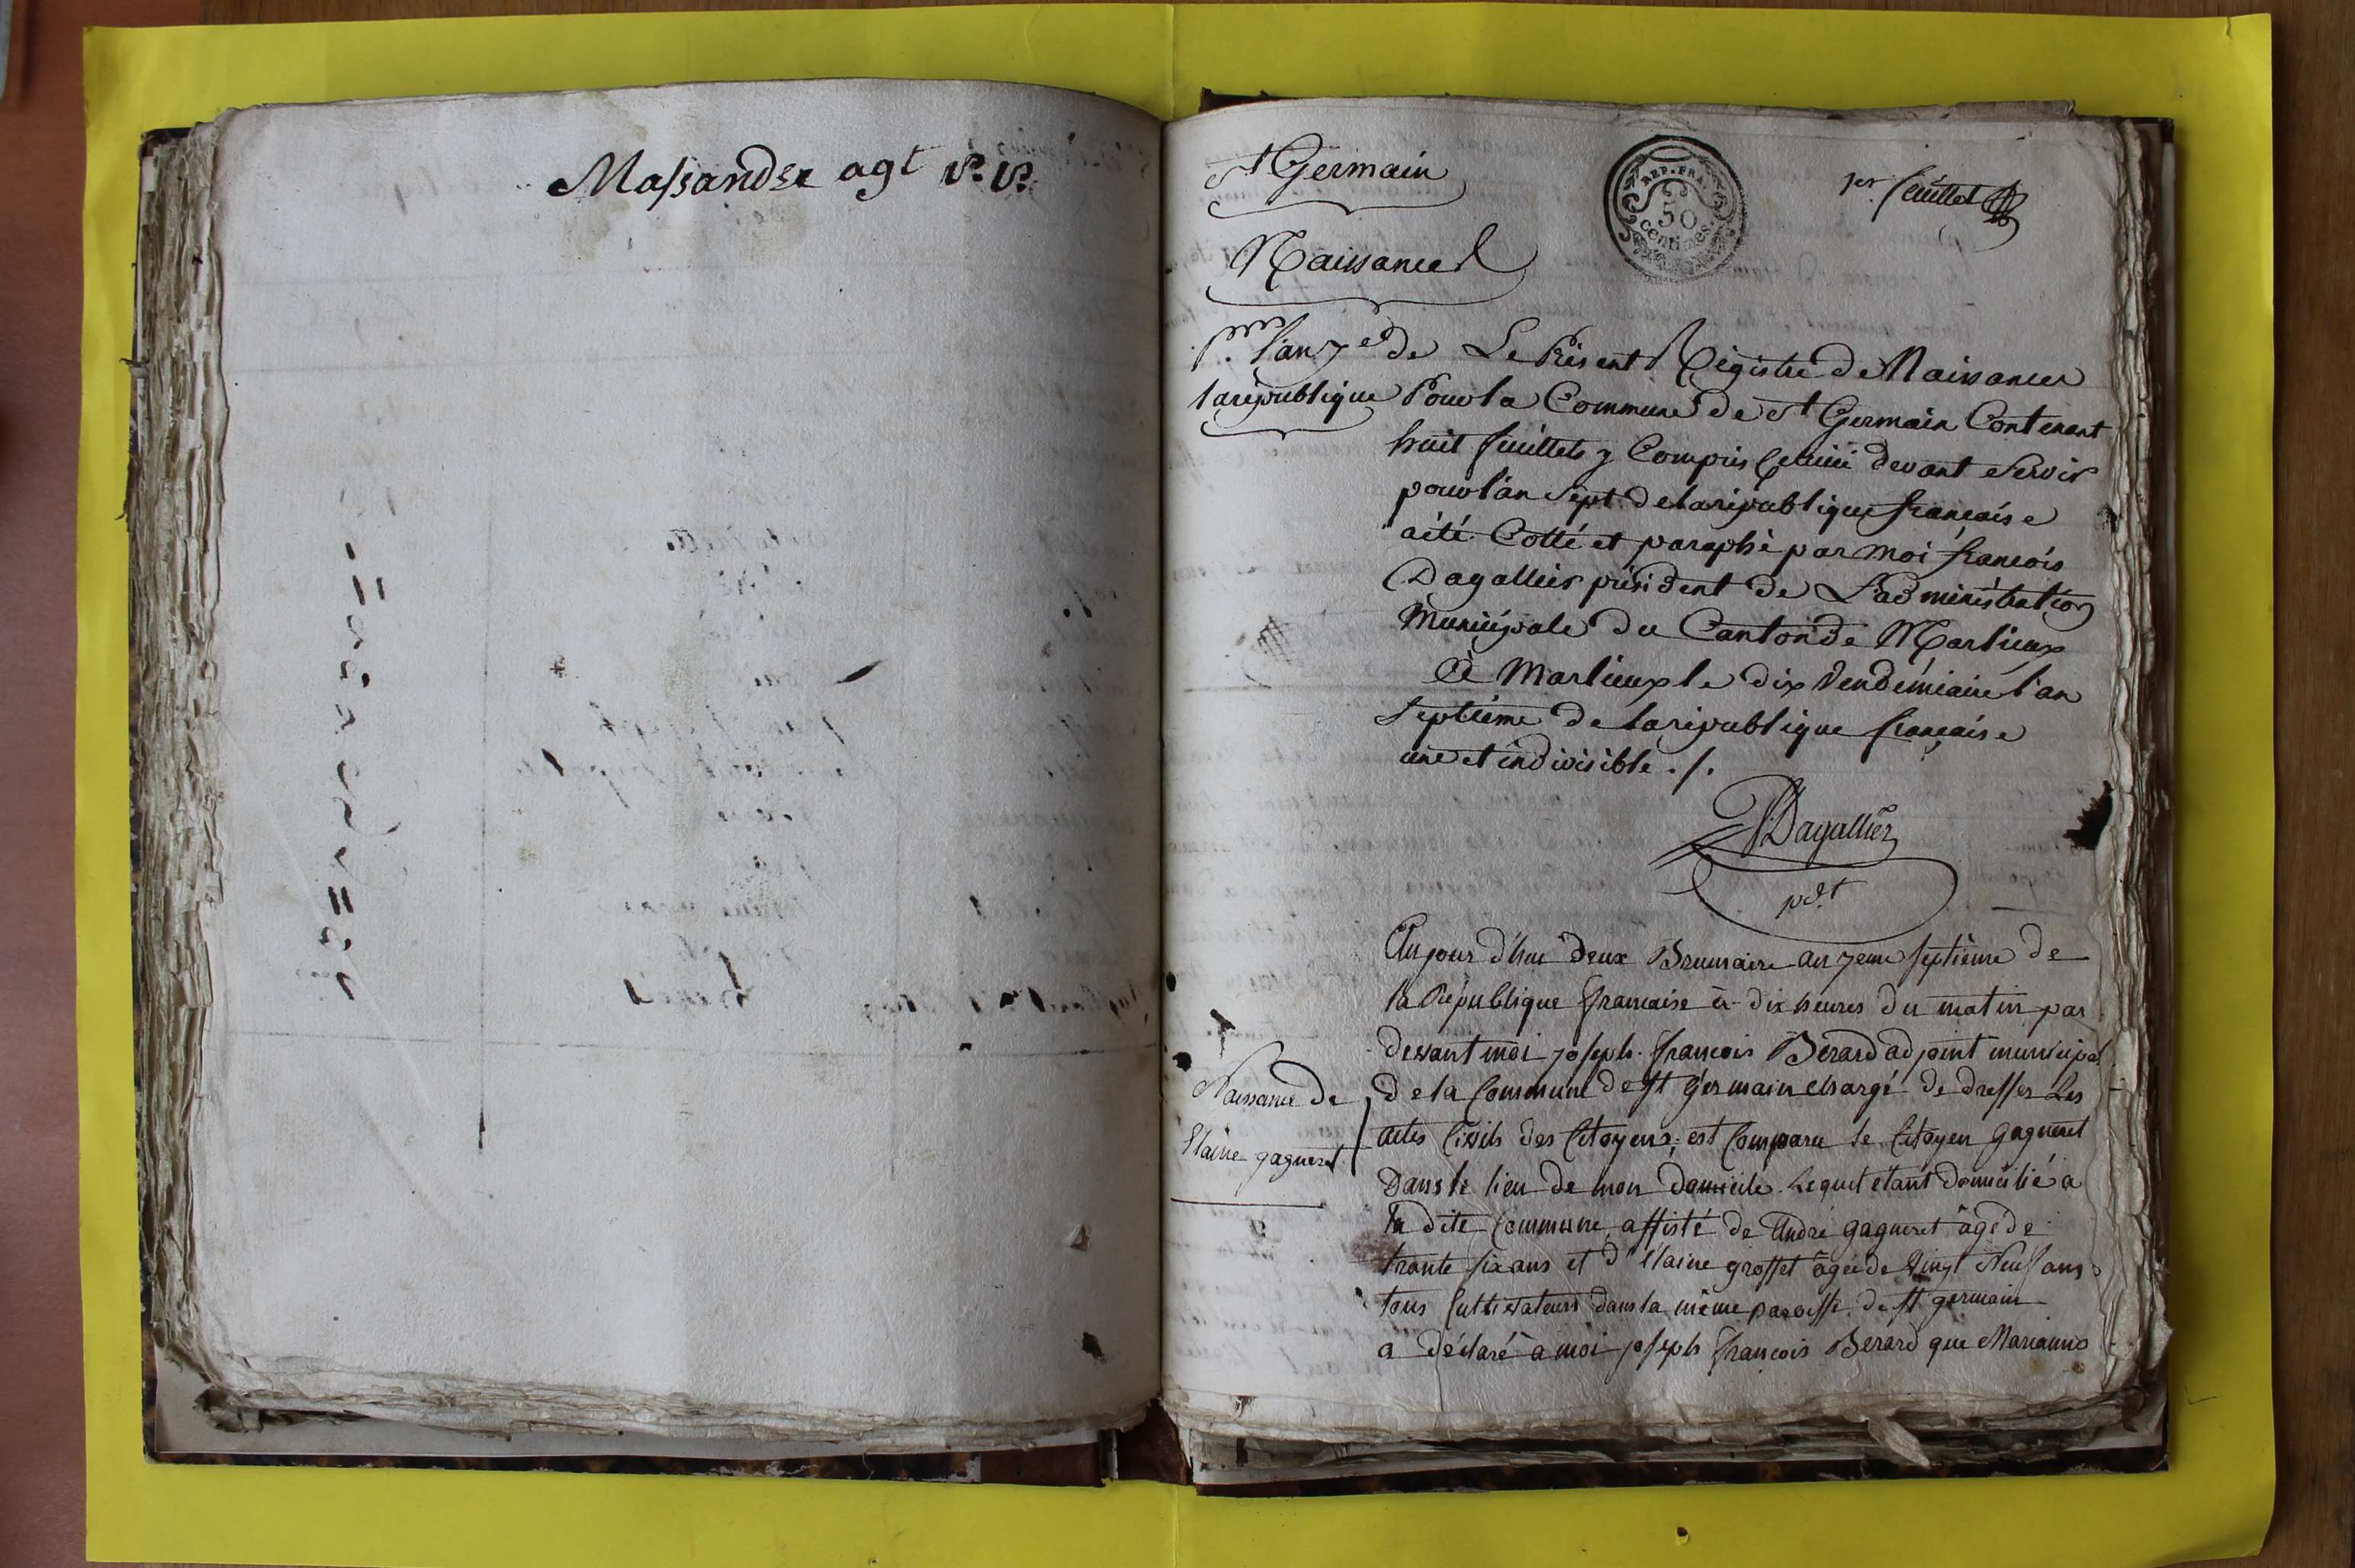 Massandre agt
St Germain
REP. FRA.
50
centimes
1er feuillet
Naissances
pr l'an 7e de
la république
Le Présent Régistre de Naissances
Pour la Commune de St Germain Contenant
huit feuillets y Compris Celuici devant servir
pour l'an sept de la république française
aété Cotté et paraphé par moi françois
Dagallier président de L'administration
Municipale du Canton de Marlieux
à Marlieux le dix Vendémiaire l'an
septième de la république française
une et indivisible ./.
Dagallier
pdt
Aujour d'hui deux Brumaire an 7eme septième de
la République française à dix heures du matin par
devant moi joseph françois Bérard adjoint municipal
de la Commune de st Germain chargé de dresser Les
actes Civils des Citoyens, est Comparu le Citoyen gagneret
Dans le lieu de mon domicile. Lequel étant domicilié a
la dite Commune, assisté de André gagneret âgé de
trante six ans et d'Elaine grosset âgée de Vingt Neuf ans
tous Cultivateurs dans la même paroisse de st germain
a déclaré à moi joseph françois Berard que Marianne
Naissance de
Elaine gagneret